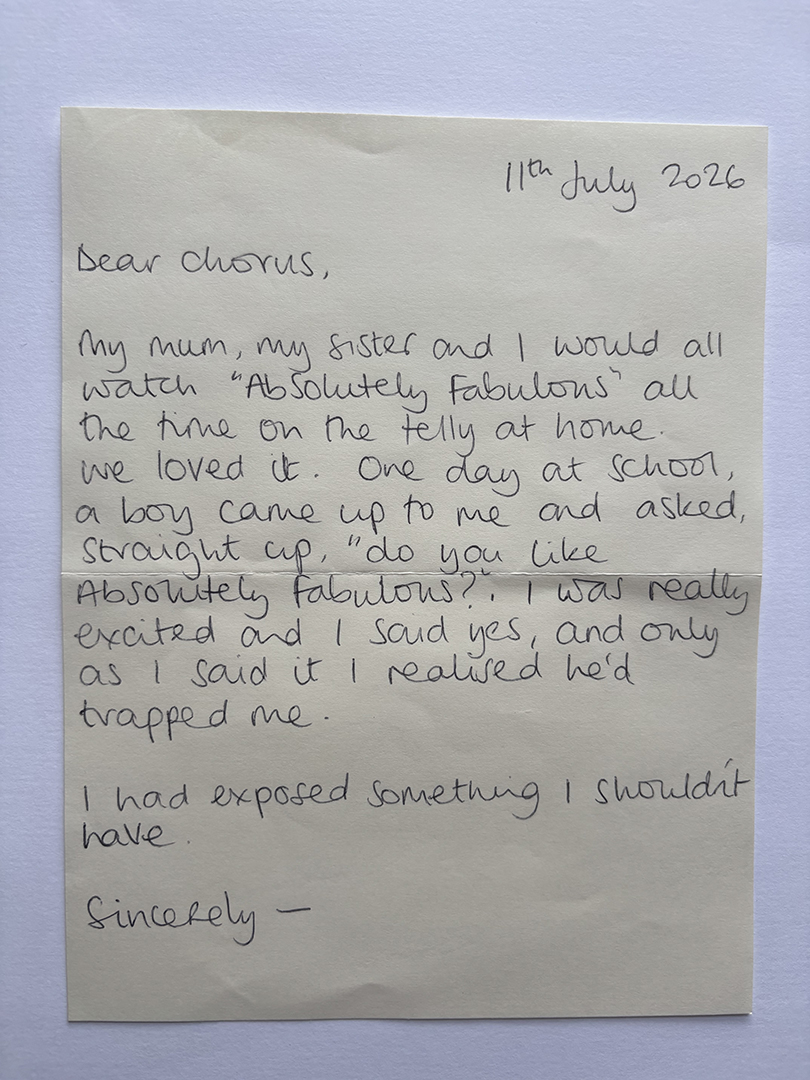 11th July 2026
Dear Chorus,
My mum, my sister and I would all
watch "Absolutely Fabulous" all
the time on the telly at home.
We loved it. One day at school,
a boy came up to me and asked,
straight up, "do you like
Absolutely Fabulous?". I was really
excited and I said yes, and only
as I said it I realised he'd
trapped me.
I had exposed something I shouldn't
have.
Sincerely —